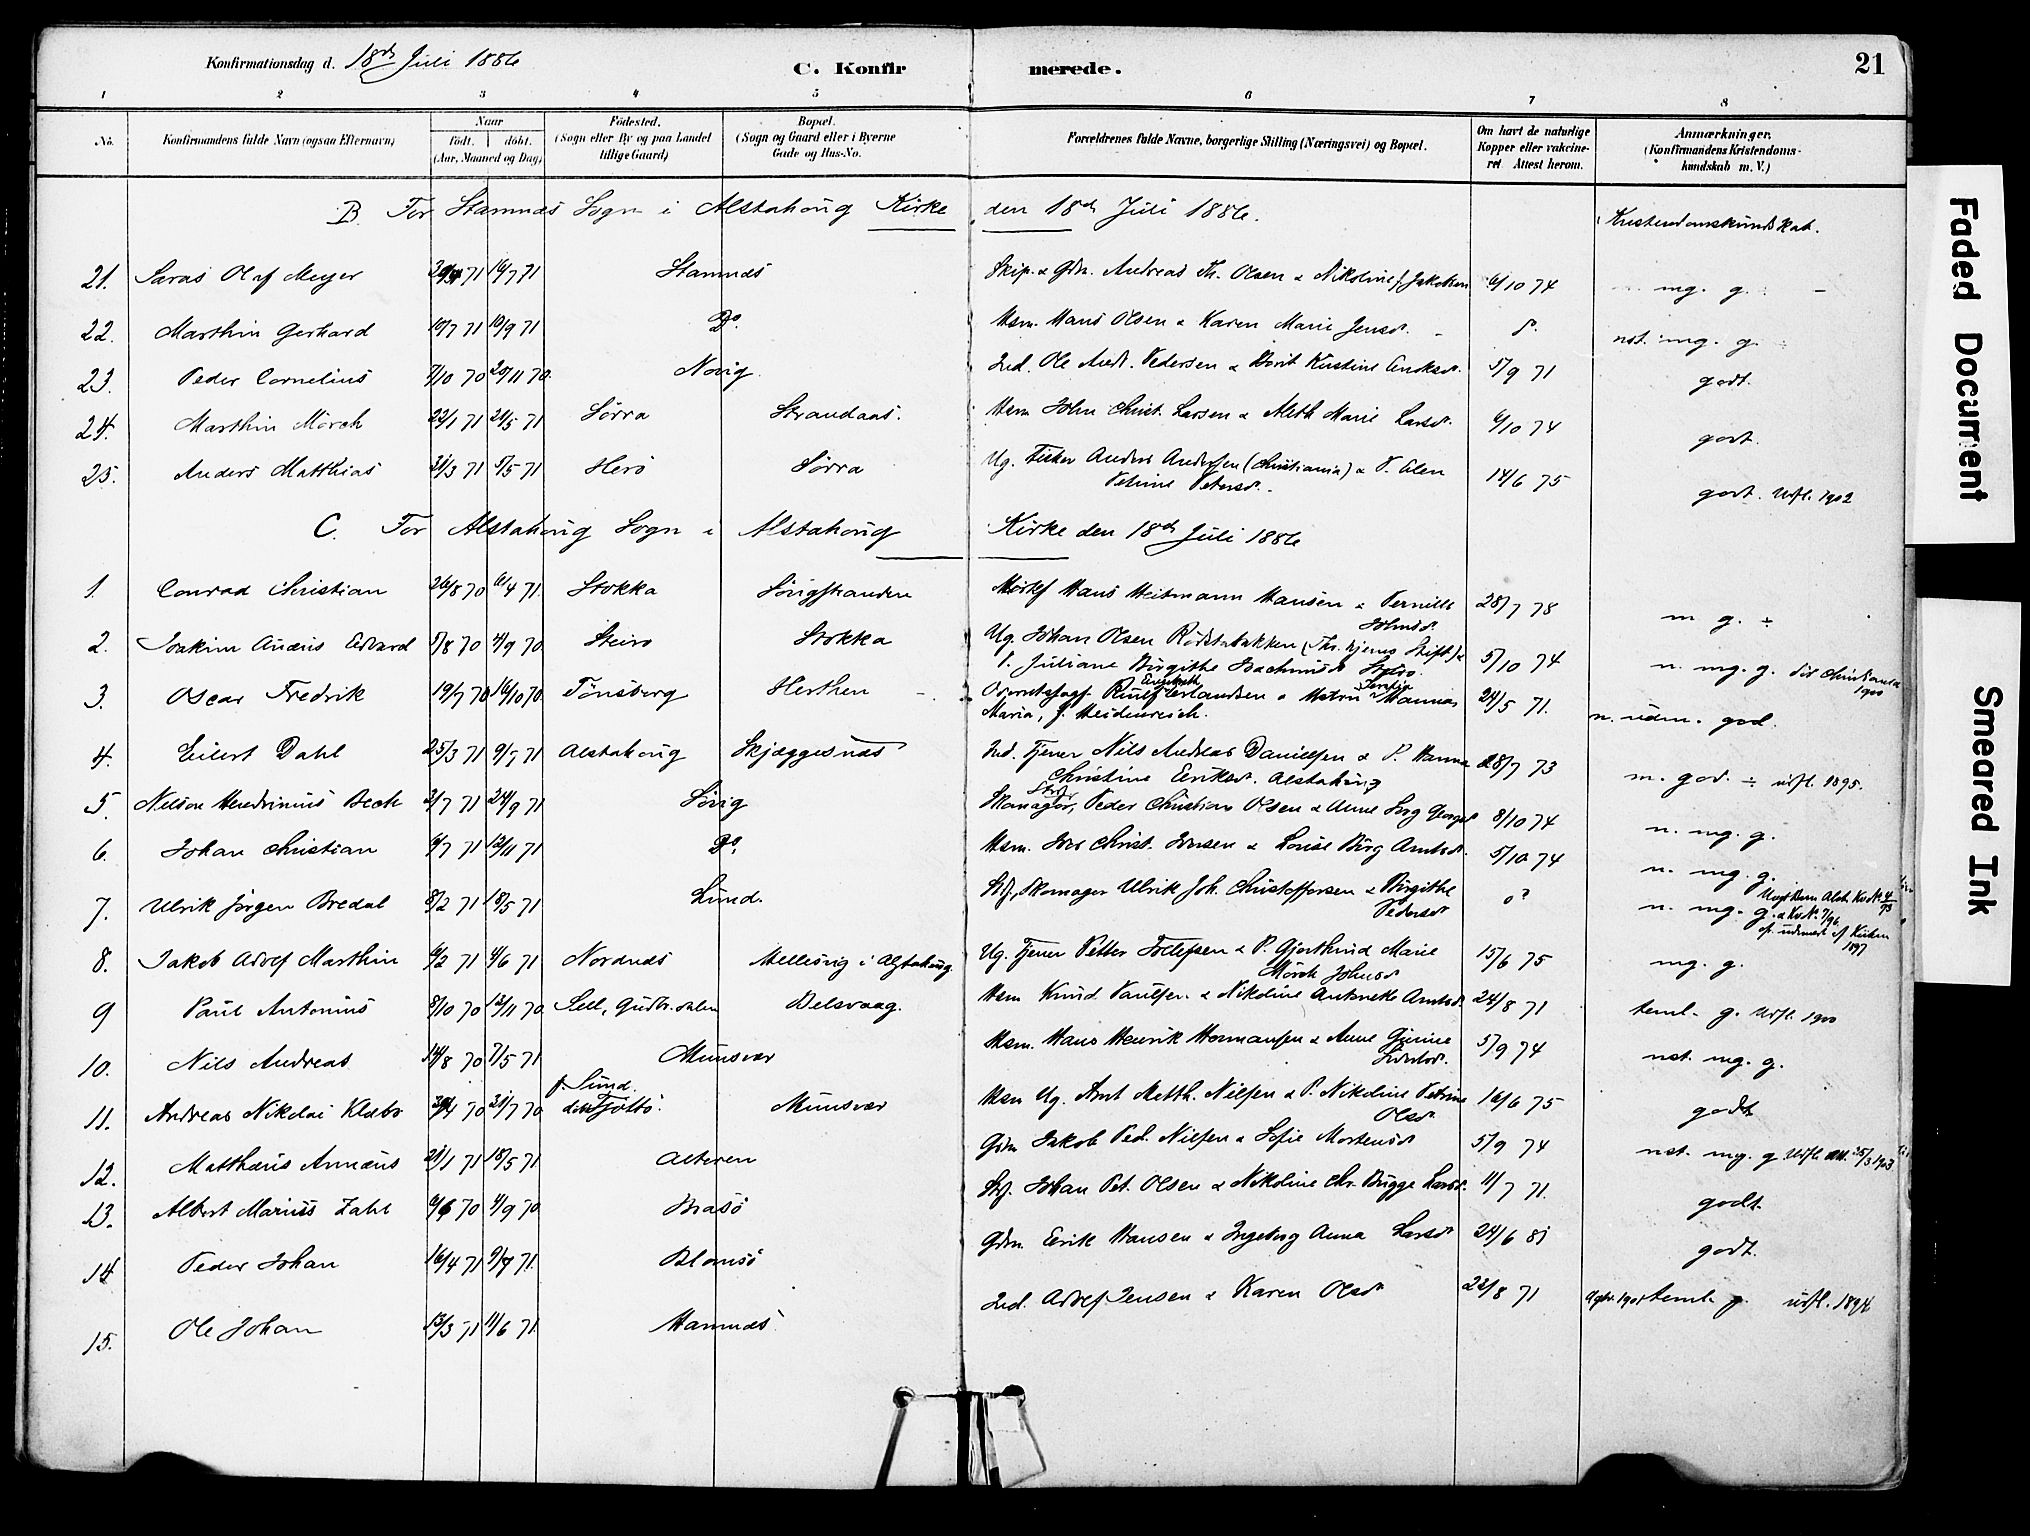 Konfirmationsdag d. 18de Juli 1886 C. Konfirmerede. 21
1 2 3 4 5 6 7 8
No. Konfirmandens fulde Navn (ogsaa Efternavn) Naar födt. döbt. (Aar, Maaned og Dag) Födested. (Sogn eller By og paa Landet tillige Gaard) Bopæl. (Sogn og Gaard eller i Byerne Gade og Hus-No. Forældrenes fulde Navne, borgerlige Stilling (Næringsvei) og Bopæl. Om havt de naturlige Kopper eller vakcineret Attest herom. Anmærkninger, (Konfirmandens Kristendomskundskab m. V.)
B. For Stamnes Sogn i Alstahoug Kirke den 18de Juli 1886. Kristendomskundskab.
21. Olaf Meyer 71 16/7 71 Stamnes Skip. & Gdm. Andreas Th. Olsen & Nikoline f. Jakobsen 6/10 74 mg. g.
22. Marthin Gerhard 10/7 71 10/9 71 Do. Hsm. Hans Olsen & Karen Marie Jensd. nst. mg. g.
23. Peder Cornelius 7/10 70 20/11 70. Novig. Ind. Ole Andr. Pedersen & Berit Kirstine 5/9 71 godt.
24. Marthin Mörch 22/1 71 21/5 71 Sörra Strandaas. Hsm John Christ. Larsen & Aleth Marie Larsd. 6/10 74 godt.
25. Anders Matthias 31/3 71 5/5 71 Herö Sörra Ug. Fisker Anders Andersen (Christiania) & P. Elen Petrine Petersd. 14/6 75 godt. Udfl. 1902
C. For Alstahoug Sogn i Alstahoug Kirke den 18de Juli 1886
1. Conrad Christian 26/8 70 6/4 71. Stokka Sörigstranden Hans Heitmann Hansen & Pernille Johnsd. 28/7 78 m g. ÷
2. Joakim Anæus Edvard 5/8 70 4/9 70. Steiro Stokka Ug. Johan Olsen Rödstabakken (Thr.hjems Stift) & P. Juliane Birgithe Steiro 5/10 74 n. mg. g. Christiania 1900
3. Oscar Fredrik 19/7 70 16/10 70. Tönsberg Herthen Erlandsen & Hustru Hanna Maria, f. Heidenreich. 24/5 71. n. udm. god.
4. Eilert Dahl 25/3 71 9/5 71 Alstahoug Skjæggesnæs Ind. Tjener Nils Andreas Danielsen & P. Hanna Christine Eriksd. Alstahoug 28/7 73 m. god. ÷ udfl. 1895.
5. Nelson Hendrinius Bech 2/7 71 24/9 71 Sörig Skomager, Peder Christian Olsen & Anne 8/10 74 n. mg. g.
6. Johan Christian 6/7 71 12/11 71 Do. Hsm. Iver Christ. Iversen & Lovise Birg. Arntsd. 5/10 74 n. mg. g.
7. Ulrik Jörgen Bredal 8/2 71 18/5 71 Lund. Skomager Ulrik Joh. Christoffersen & Birgithe Pedersd n. mg. g. 1897
8. Jakob Adolf Marthin 6/2 71 4/6 71 Nordnes Mellesvig i Alstahoug. Ug. Tjener Petter Tollefsen & P. Gjerthrud Marie Mörch Johnsd 15/6 75 mg. g.
9 Paul Antonius 8/10 70 13/11 70. Sell, Gudbr.dalen Belsvaag. Hsm Knud Paulsen & Nikoline Antonette Arntsd. 24/8 71 teml. g. Udfl. 1900
10. Nils Andreas 14/8 70 7/5 71 Munsvær Hsm. Hans Henrik Hermansen & Anne Gurine 5/9 74 nst. mg. g.
11. Andreas Nikolai Klæbo 70 31/7 70 f. Sund. döbt Tjöttö. Munsvær Hsm Ug. Arnt Matth. Nilsen & P. Nikoline Petrine Olsd 16/6 75 godt
12. Matthæus Annæus 21/1 71 18/5 71 Alteren Gdm Jakob Ped. Nilsen & Sofie Mortensd 5/9 74 nst. mg. g Udfl. 25/3 1903
13. Albert Marius Zahl 70 4/9 70 Brasö Johan Pet. Olsen & Nikoline Chr. Brügge Larsd. 11/7 71. godt.
14 Peder Johan 16/4 71 9/7 71. Blomsö Gdm. Eerik Hansen & Ingeborg Anna Larsd 24/6 81 godt.
15. Ole Johan 13/3 71 11/6 71. Hamnes Ind. Adolf Jensen & Karen Olsd 22/8 71 teml. g. udfl. 1894
Faded Document
Smeared Ink